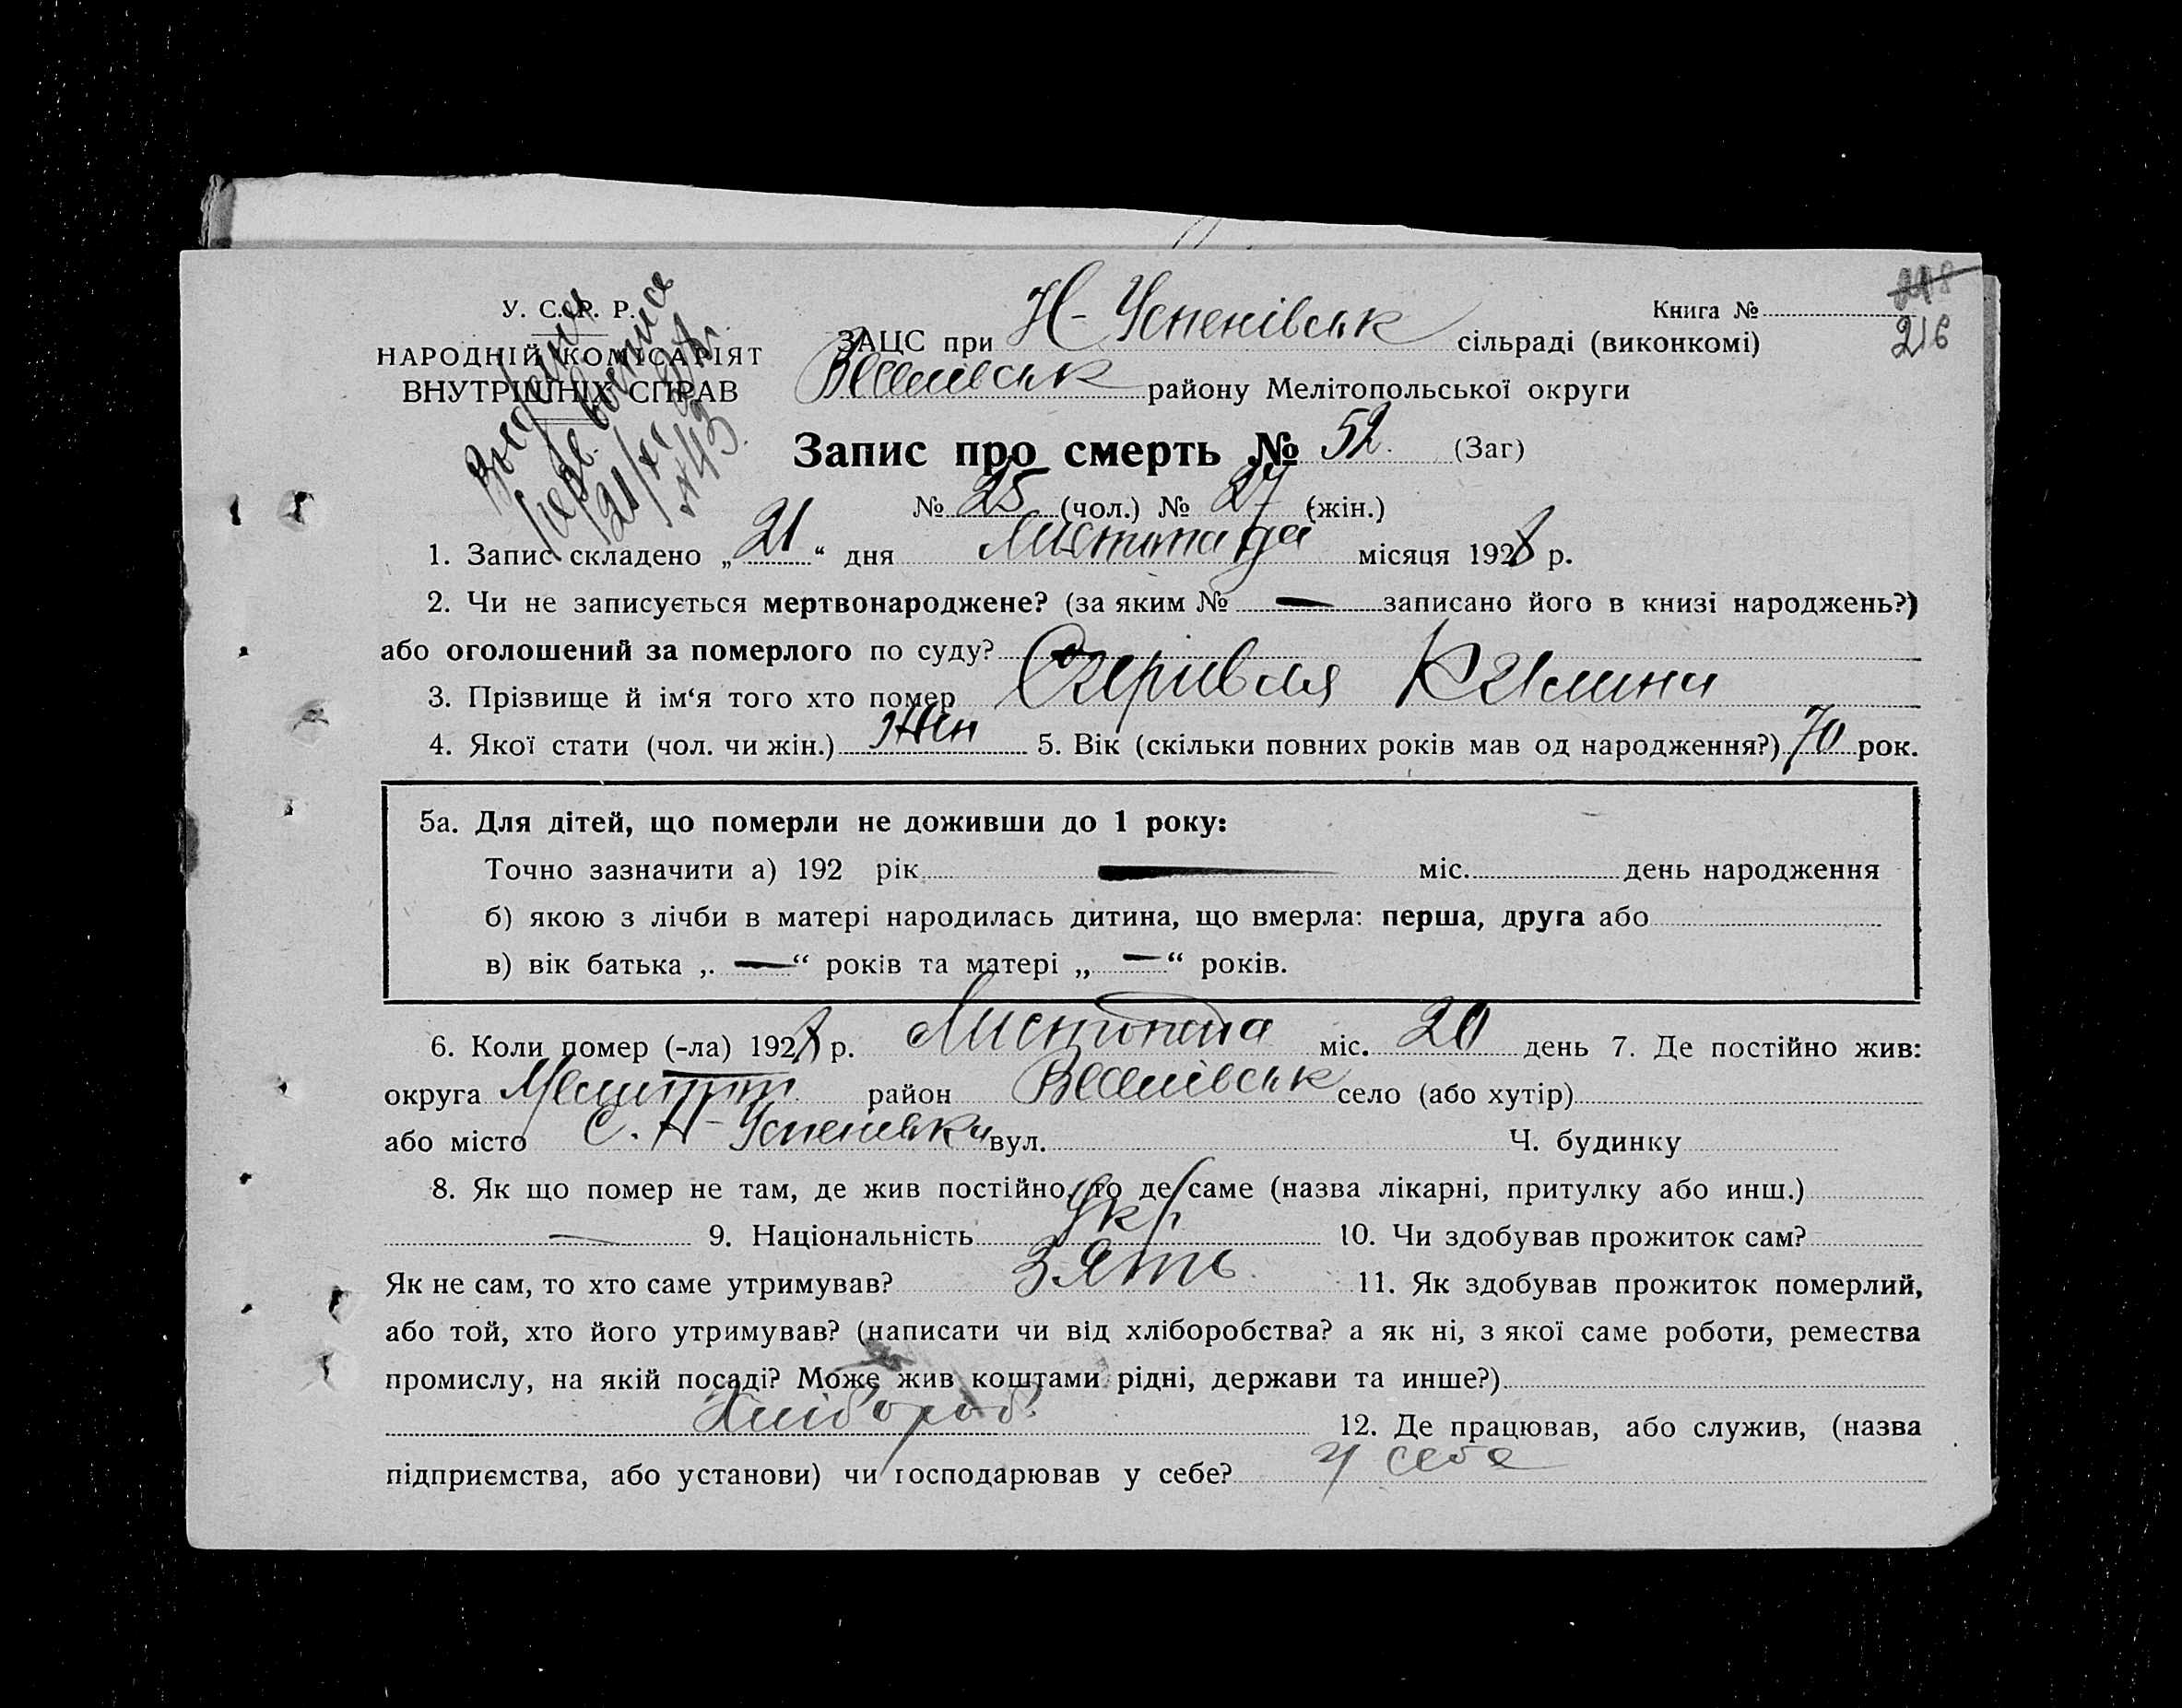 218
216
У. С. Р. Р.
НАРОДНІЙ КОМІСАРІЯТ
ВНУТРІШНІХ СПРАВ
Книга №
ЗАЦС при Н-Успенівськ сільраді (виконкомі)
Веселівськ району Мелітопольської округи
Запис про смерть № 52. (Заг)
№ 25 (чол.) № 27 (жін.)
21/XI
№43
1. Запис складено „21“ дня Листопада місяця 1928 р.
2. Чи не записується мертвонароджене? (за яким № — записано його в книзі народжень?)
або оголошений за померлого по суду?
3. Прізвище й ім‘я того хто помер
4. Якої стати (чол. чи жін.) Жен 5. Вік (скільки повних років мав од народження?) 70 рок.
5а. Для дітей, що померли не доживши до 1 року:
Точно зазначити а) 192 рік — міс. день народження
б) якою з лічби в матері народилась дитина, що вмерла: перша, друга або
в) вік батька „ — “ років та матері „ — “ років.
6. Коли помер (-ла) 1928 р. Листопада міс. 20 день 7. Де постійно жив:
округа Мелитоп район Веселівськ село (або хутір)
або місто С. Н-Успенівки вул. Ч. будинку
8. Як що помер не там, де жив постійно, то де саме (назва лікарні, притулку або инш.)
— 9. Національність Укр. 10. Чи здобував прожиток сам?
Як не сам, то хто саме утримував? Зять. 11. Як здобував прожиток померлий,
або той, хто його утримував? (написати чи від хліборобства? а як ні, з якої саме роботи, ремества
промислу, на якій посаді? Може жив коштами рідні, держави та инше?)
Хлібороб. 12. Де працював, або служив, (назва
підприємства, або установи) чи господарював у себе? у себе